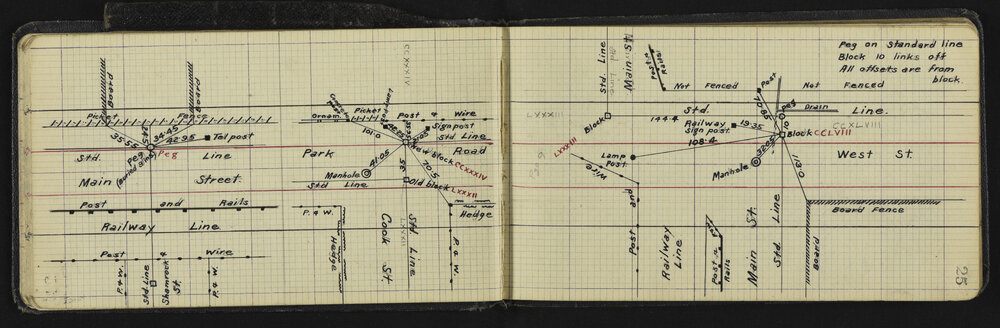 Board
Fence
Board
Picket
34.45
42.95
Tel post
Peg
(Buried 2 ins)
Peg
Std. Line
Main Street.
Post and Rails
Railway Line
Post & Wire
P. & W.
Std Line
Shamrock St.
P. & W.
CCXXXIV
Ornam.
Picket
Post & Wire
101.0
Sign post
Std Line
Park Road
New block CCXXXIV
41.05
Manhole
35
70.5
Std Line
Old block LXXXII
P. & W.
Hedge
Hedge
LXXXII
Cook St.
Std. Line
P. & W.
Std. Line
Main St.
Post & Rails
Peg on Standard line
Block 10 links off
All offsets are from
block.
Not Fenced
Post
Not Fenced
LXXXIII
Block
Std.
peg
Drain
Line.
144.4
Railway
Sign post.
19.35
10
CCXLVIII
108.4
Block CCLVIII
LXXXIII
Lamp
Post.
Manhole
32.05
113.0
West St.
Wire
and
Post
Board Fence
Railway Line
Post & Rails
Main St.
Std Line
Board
25